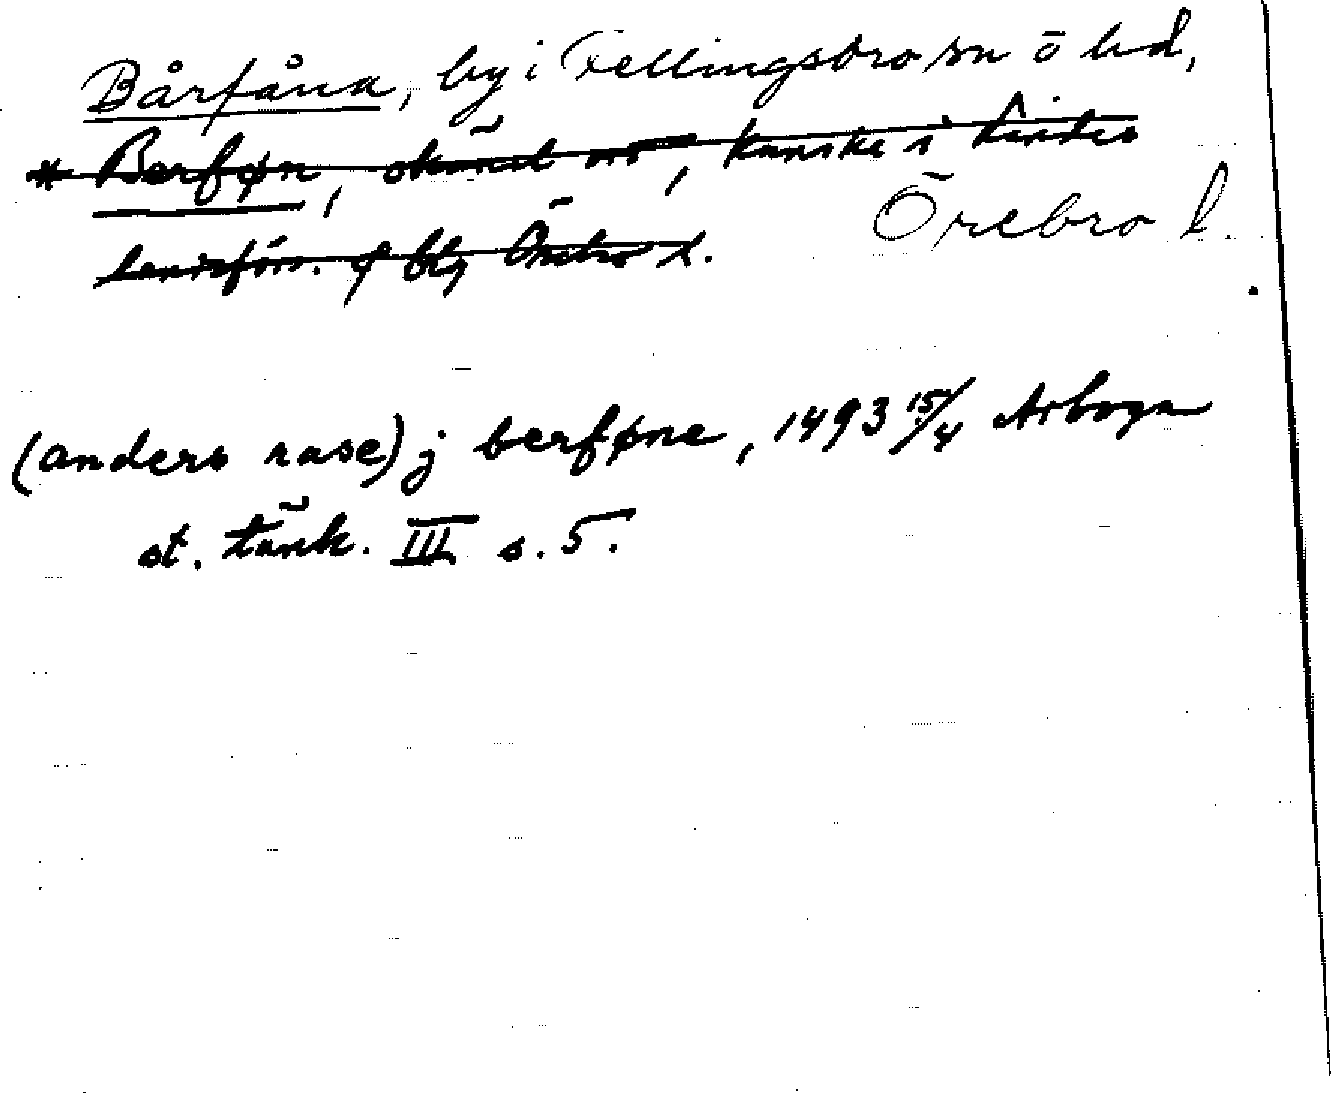 Bårfåna, by i Fellingsbro sn ö hd,
* Berføn, okänd ort, kanske i Lindes
Örebro l.
landsförs. o blg Örebro l.
(anders rase) j berføne, 1493 15/4 Arboga
st. tänk. III s. 5.